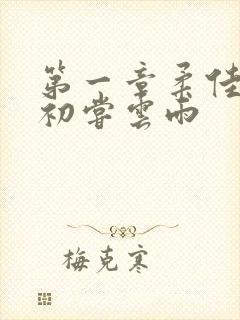 第一章柔佳
初尝雲雨
梅克寒